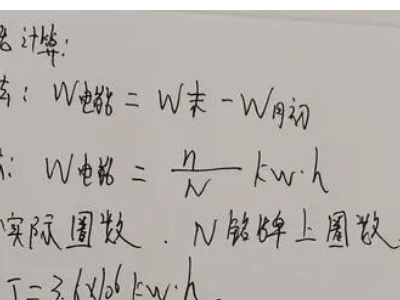 计算:
: W电能 = W末 - W月初
: W电能 = n/N kw·h
实际圈数 . N铭牌上圈数
J = 3.6×10⁶ kw·h.